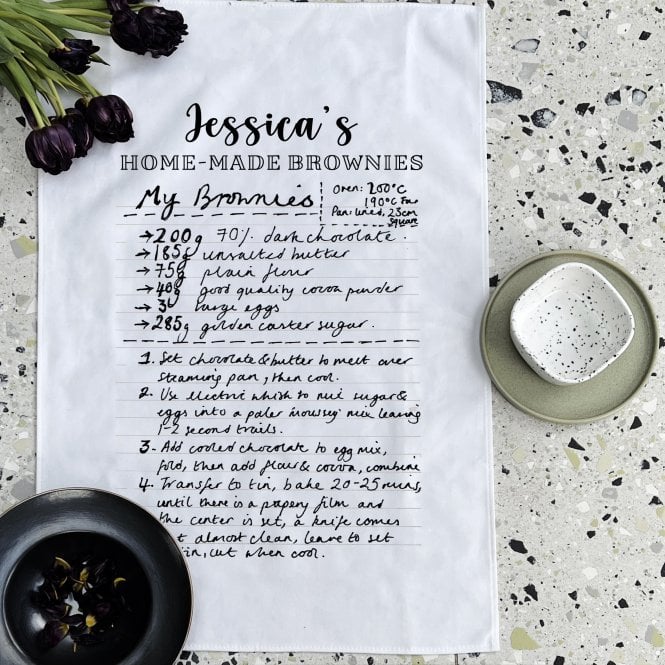 Jessica's
HOME-MADE BROWNIES
My Brownies
Oven: 200°C
190°C Fan
Pan: lined, 23cm
square
→200g 70% dark chocolate.
→185g unsalted butter
→75g plain flour
→40g good quality cocoa powder
→3 large eggs
→285g golden caster sugar.
1. Set chocolate & butter to melt over
steaming pan, then cool.
2. Use electric whisk to mix sugar &
eggs into a paler 'moussey' mix leaving
1-2 second trails.
3. Add cooled chocolate to egg mix,
fold, then add flour & cocoa, combine
4. Transfer to tin, bake 20-25 mins,
until there is a papery film and
the center is set, a knife comes
almost clean, leave to set
in, cut when cool.